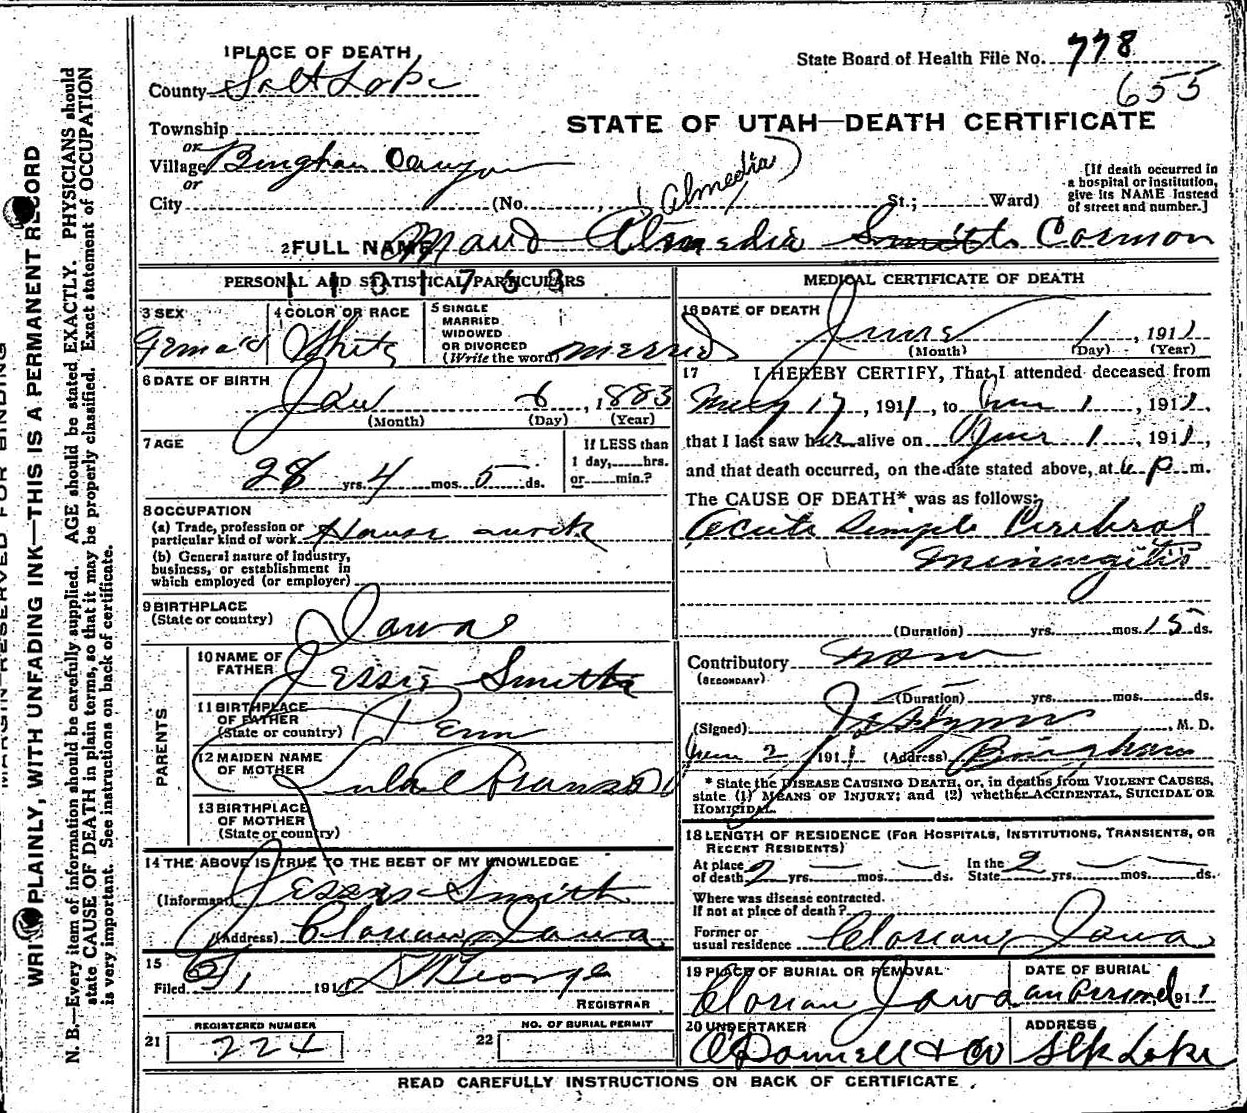 1 PLACE OF DEATH
County Salt Lake
State Board of Health File No. 778
655
Township
or
Village Bingham Canyon
or
City (No. , St.; Ward)
STATE OF UTAH—DEATH CERTIFICATE
[If death occurred in
a hospital or institution,
give its NAME instead
of street and number.]
(Almedia)
2 FULL NAME Maud Almedia Smith Cormon
PERSONAL AND STATISTICAL PARTICULARS
3 SEX
4 COLOR OR RACE White
5 SINGLE
MARRIED
WIDOWED
OR DIVORCED
(Write the word) married
6 DATE OF BIRTH
Jan 6, 1883
(Month) (Day) (Year)
7 AGE
28 yrs. 4 mos. 5 ds.
If LESS than
1 day, hrs.
or min.?
8 OCCUPATION
(a) Trade, profession or
particular kind of work House work
(b) General nature of industry,
business, or establishment in
which employed (or employer)
9 BIRTHPLACE
(State or country) Iowa
PARENTS
10 NAME OF
FATHER Jessie Smith
11 BIRTHPLACE
OF FATHER
(State or country) Penn
12 MAIDEN NAME
OF MOTHER
13 BIRTHPLACE
OF MOTHER
(State or country)
14 THE ABOVE IS TRUE TO THE BEST OF MY KNOWLEDGE
(Informant) Smith
(Address) Iowa
15
Filed 191
REGISTRAR
REGISTERED NUMBER
21 224
NO. OF BURIAL PERMIT
22
MEDICAL CERTIFICATE OF DEATH
16 DATE OF DEATH
June 1, 1911
(Month) (Day) (Year)
17 I HEREBY CERTIFY, That I attended deceased from
May 17, 1911, to June 1, 1911,
that I last saw her alive on June 1, 1911,
and that death occurred, on the date stated above, at 6 p m.
The CAUSE OF DEATH* was as follows:
Acute Simple Cerebral
Meningitis
(Duration) yrs. mos. 15 ds.
Contributory none
(SECONDARY)
(Duration) yrs. mos. ds.
(Signed) , M. D.
June 2 1911 (Address) Bingham
* State the DISEASE CAUSING DEATH, or, in deaths from VIOLENT CAUSES,
state (1) MEANS OF INJURY; and (2) whether ACCIDENTAL, SUICIDAL OR
HOMICIDAL.
18 LENGTH OF RESIDENCE (FOR HOSPITALS, INSTITUTIONS, TRANSIENTS, OR
RECENT RESIDENTS)
At place
of death 2 yrs. mos. ds. In the
State 2 yrs. mos. ds.
Where was disease contracted.
If not at place of death?
Former or
usual residence Iowa
19 PLACE OF BURIAL OR REMOVAL
Iowa
DATE OF BURIAL
1911
20 UNDERTAKER
O'Donnell & Co
ADDRESS
Lake
READ CAREFULLY INSTRUCTIONS ON BACK OF CERTIFICATE
MARGIN RESERVED FOR BINDING
WRITE PLAINLY, WITH UNFADING INK—THIS IS A PERMANENT RECORD
N. B.—Every item of information should be carefully supplied. AGE should be stated EXACTLY. PHYSICIANS should
state CAUSE OF DEATH in plain terms, so that it may be properly classified. Exact statement of OCCUPATION
is very important. See instructions on back of certificate.